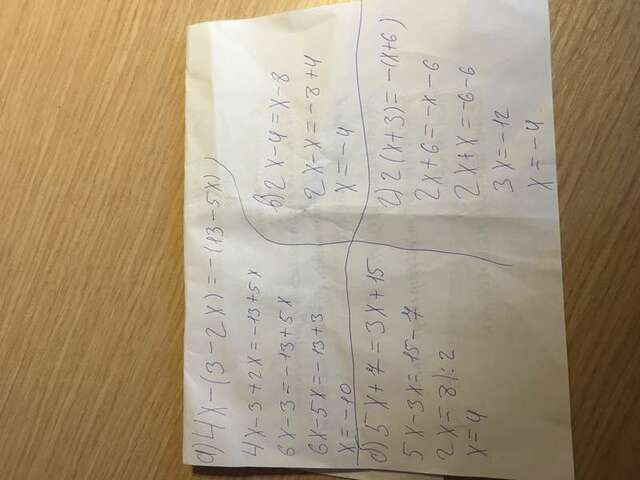 а) 4x-(3-2x)=-(13-5x)
4x-3+2x=-13+5x
6x-3=-13+5x
6x-5x=-13+3
x=-10
б) 5x+7=3x+15
5x-3x=15-7
2x=8 |:2
x=4
в) 2x-4=x-8
2x-x=-8+4
x=-4
г) 2(x+3)=-(x+6)
2x+6=-x-6
2x+x=-6-6
3x=-12
x=-4